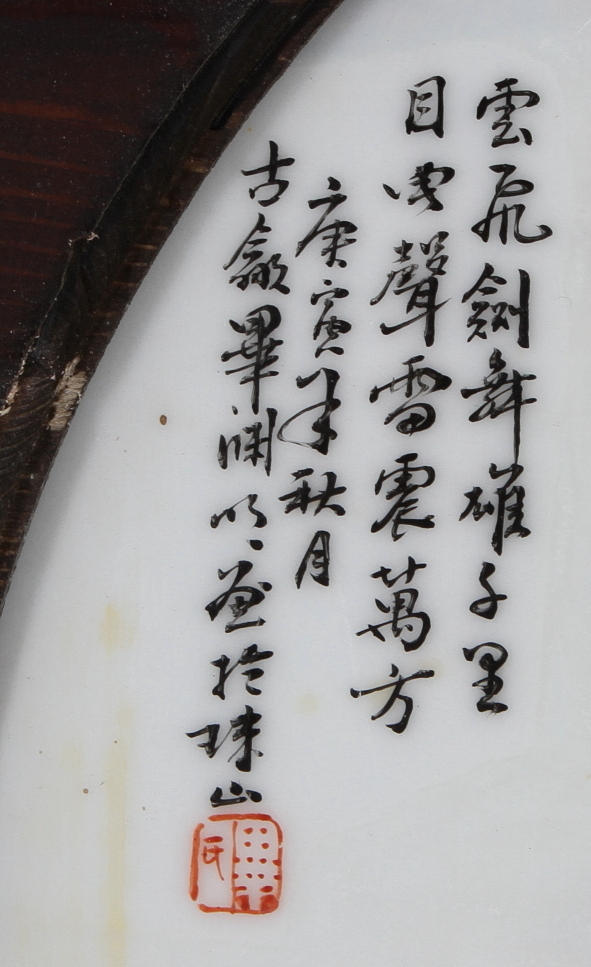 雲飛劍舞雄千里
目聲雷震萬方
庚寅年秋月
古歙畢淵明畫於珠山
畢氏